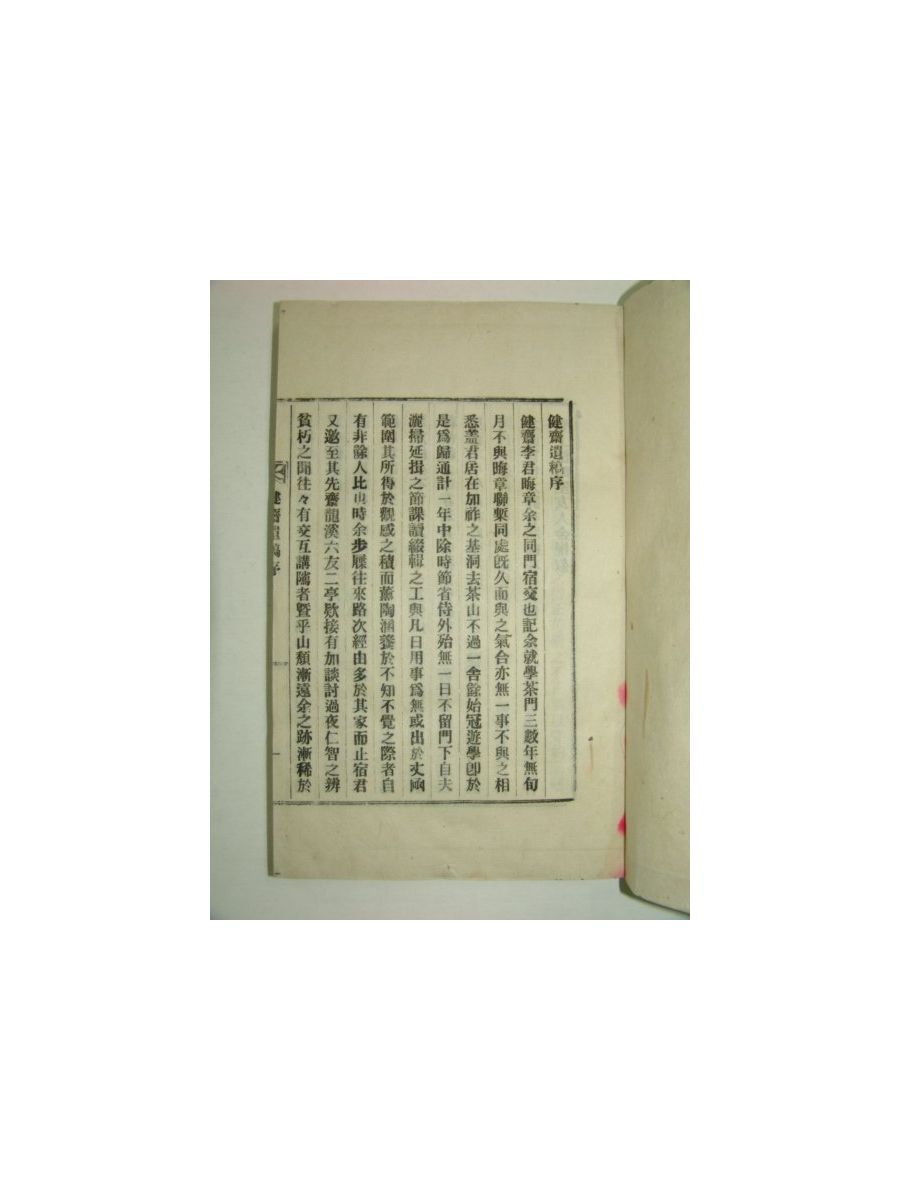 健齋遺稿序
健齋李君晦章余之同門宿交也記余就學茶門三數年無旬
月不與晦章聯槧同處旣久而與之氣合亦無一事不與之相
悉盖君居在加祚之基洞去茶山不過一舍餘始冠遊學卽於
是爲歸通計一年中除時節省侍外殆無一日不留門下自夫
灑掃延揖之節課讀綴輯之工與凡日用事爲無或出於丈凾
範圍其所得於觀感之積而薰陶涵養於不知不覺之際者自
有非餘人比也時余步屧往來路次經由多於其家而止宿君
又邀至其先齋龍溪六友二亭欵接有加談討過夜仁智之辨
貧朽之聞往々有交互講隲者曁乎山頹漸遠余之跡漸稀於
健齋遺稿序